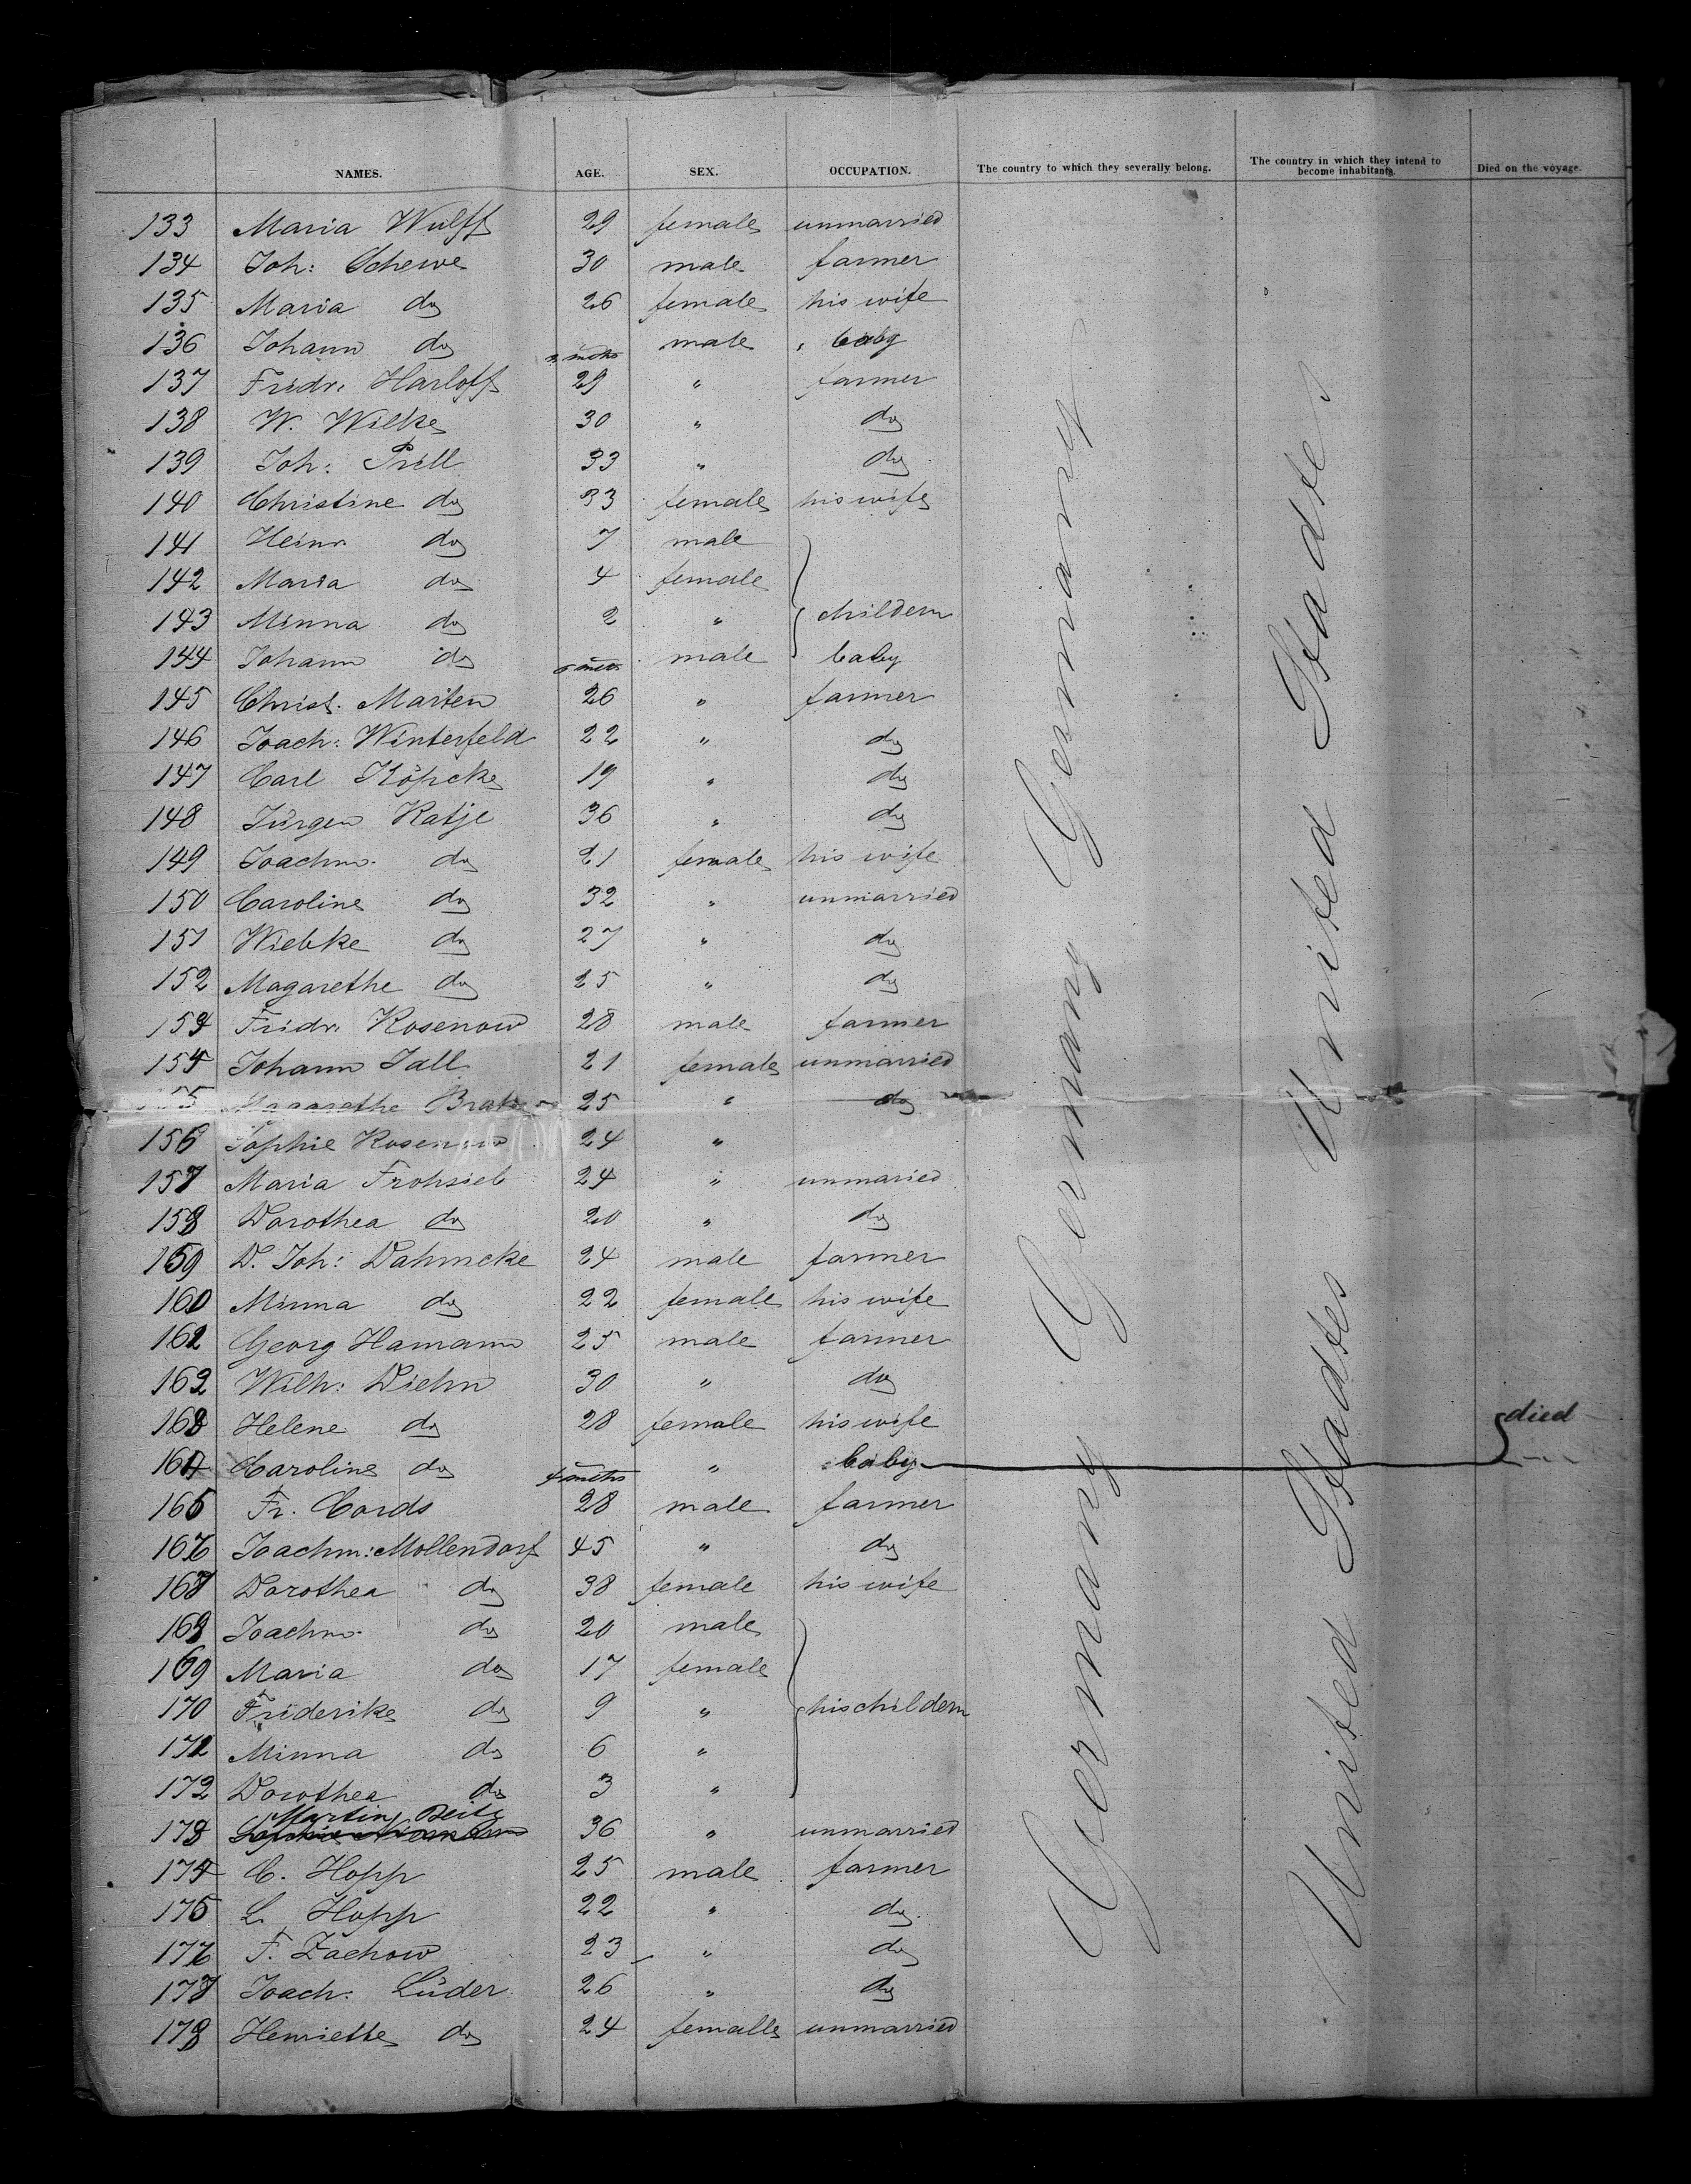 NAMES. AGE. SEX. OCCUPATION. The country to which they severally belong. The country in which they intend to become inhabitants. Died on the voyage.
133 Maria Wulff 29 female unmarried
134 Joh: Schewe 30 male farmer
135 Maria do 26 female his wife
136 Johann do mths male baby
137 Fridr. Harloff 29 " farmer
138 W. Wilke 30 " do
139 Joh: Prill 33 " do
140 Christine do 33 female his wife
141 Heinr do 7 male
142 Maria do 4 female
143 Minna do 2 " childern
144 Johann do mths male baby
145 Christ. Marten 26 " farmer
146 Joach: Winterfeld 22 " do
147 Carl Köpcke 19 " do
148 Jürgen Katje 36 " do
149 Joachm. do 21 female his wife
150 Caroline do 32 " unmarried
151 Wiebke do 27 " do
152 Magarethe do 25 " do
153 Fridr. Rosenow 28 male farmer
154 Johann Jall 21 female unmarried
155 Magarethe 25 " do
156 Sophie Rosenow 24 "
157 Maria Frohsieb 24 " unmaried
158 Dorothea do 20 " do
159 D. Joh: Dahmcke 24 male farmer
160 Minna do 22 female his wife
161 Georg Hamann 25 male farmer
162 Wilh: Diehn 30 " do
163 Helene do 28 female his wife
164 Caroline do 4 mths " baby died
165 Fr. Cords 28 male farmer
166 Joachm: Mollendorf 45 " do
167 Dorothea do 38 female his wife
168 Joachm. do 20 male
169 Maria do 17 female
170 Friderike do 9 " his childern
171 Minna do 6 "
172 Dorothea do 3 "
Martin Beitz
173 36 " unmarried
174 C. Hopp 25 male farmer
175 L. Hopp 22 " do
176 F. Zachow 23 " do
177 Joach: Lüder 26 " do
178 Henriette do 24 femalle unmarried
Germany Germany Germany Germany
United Stadtes United Stadtes